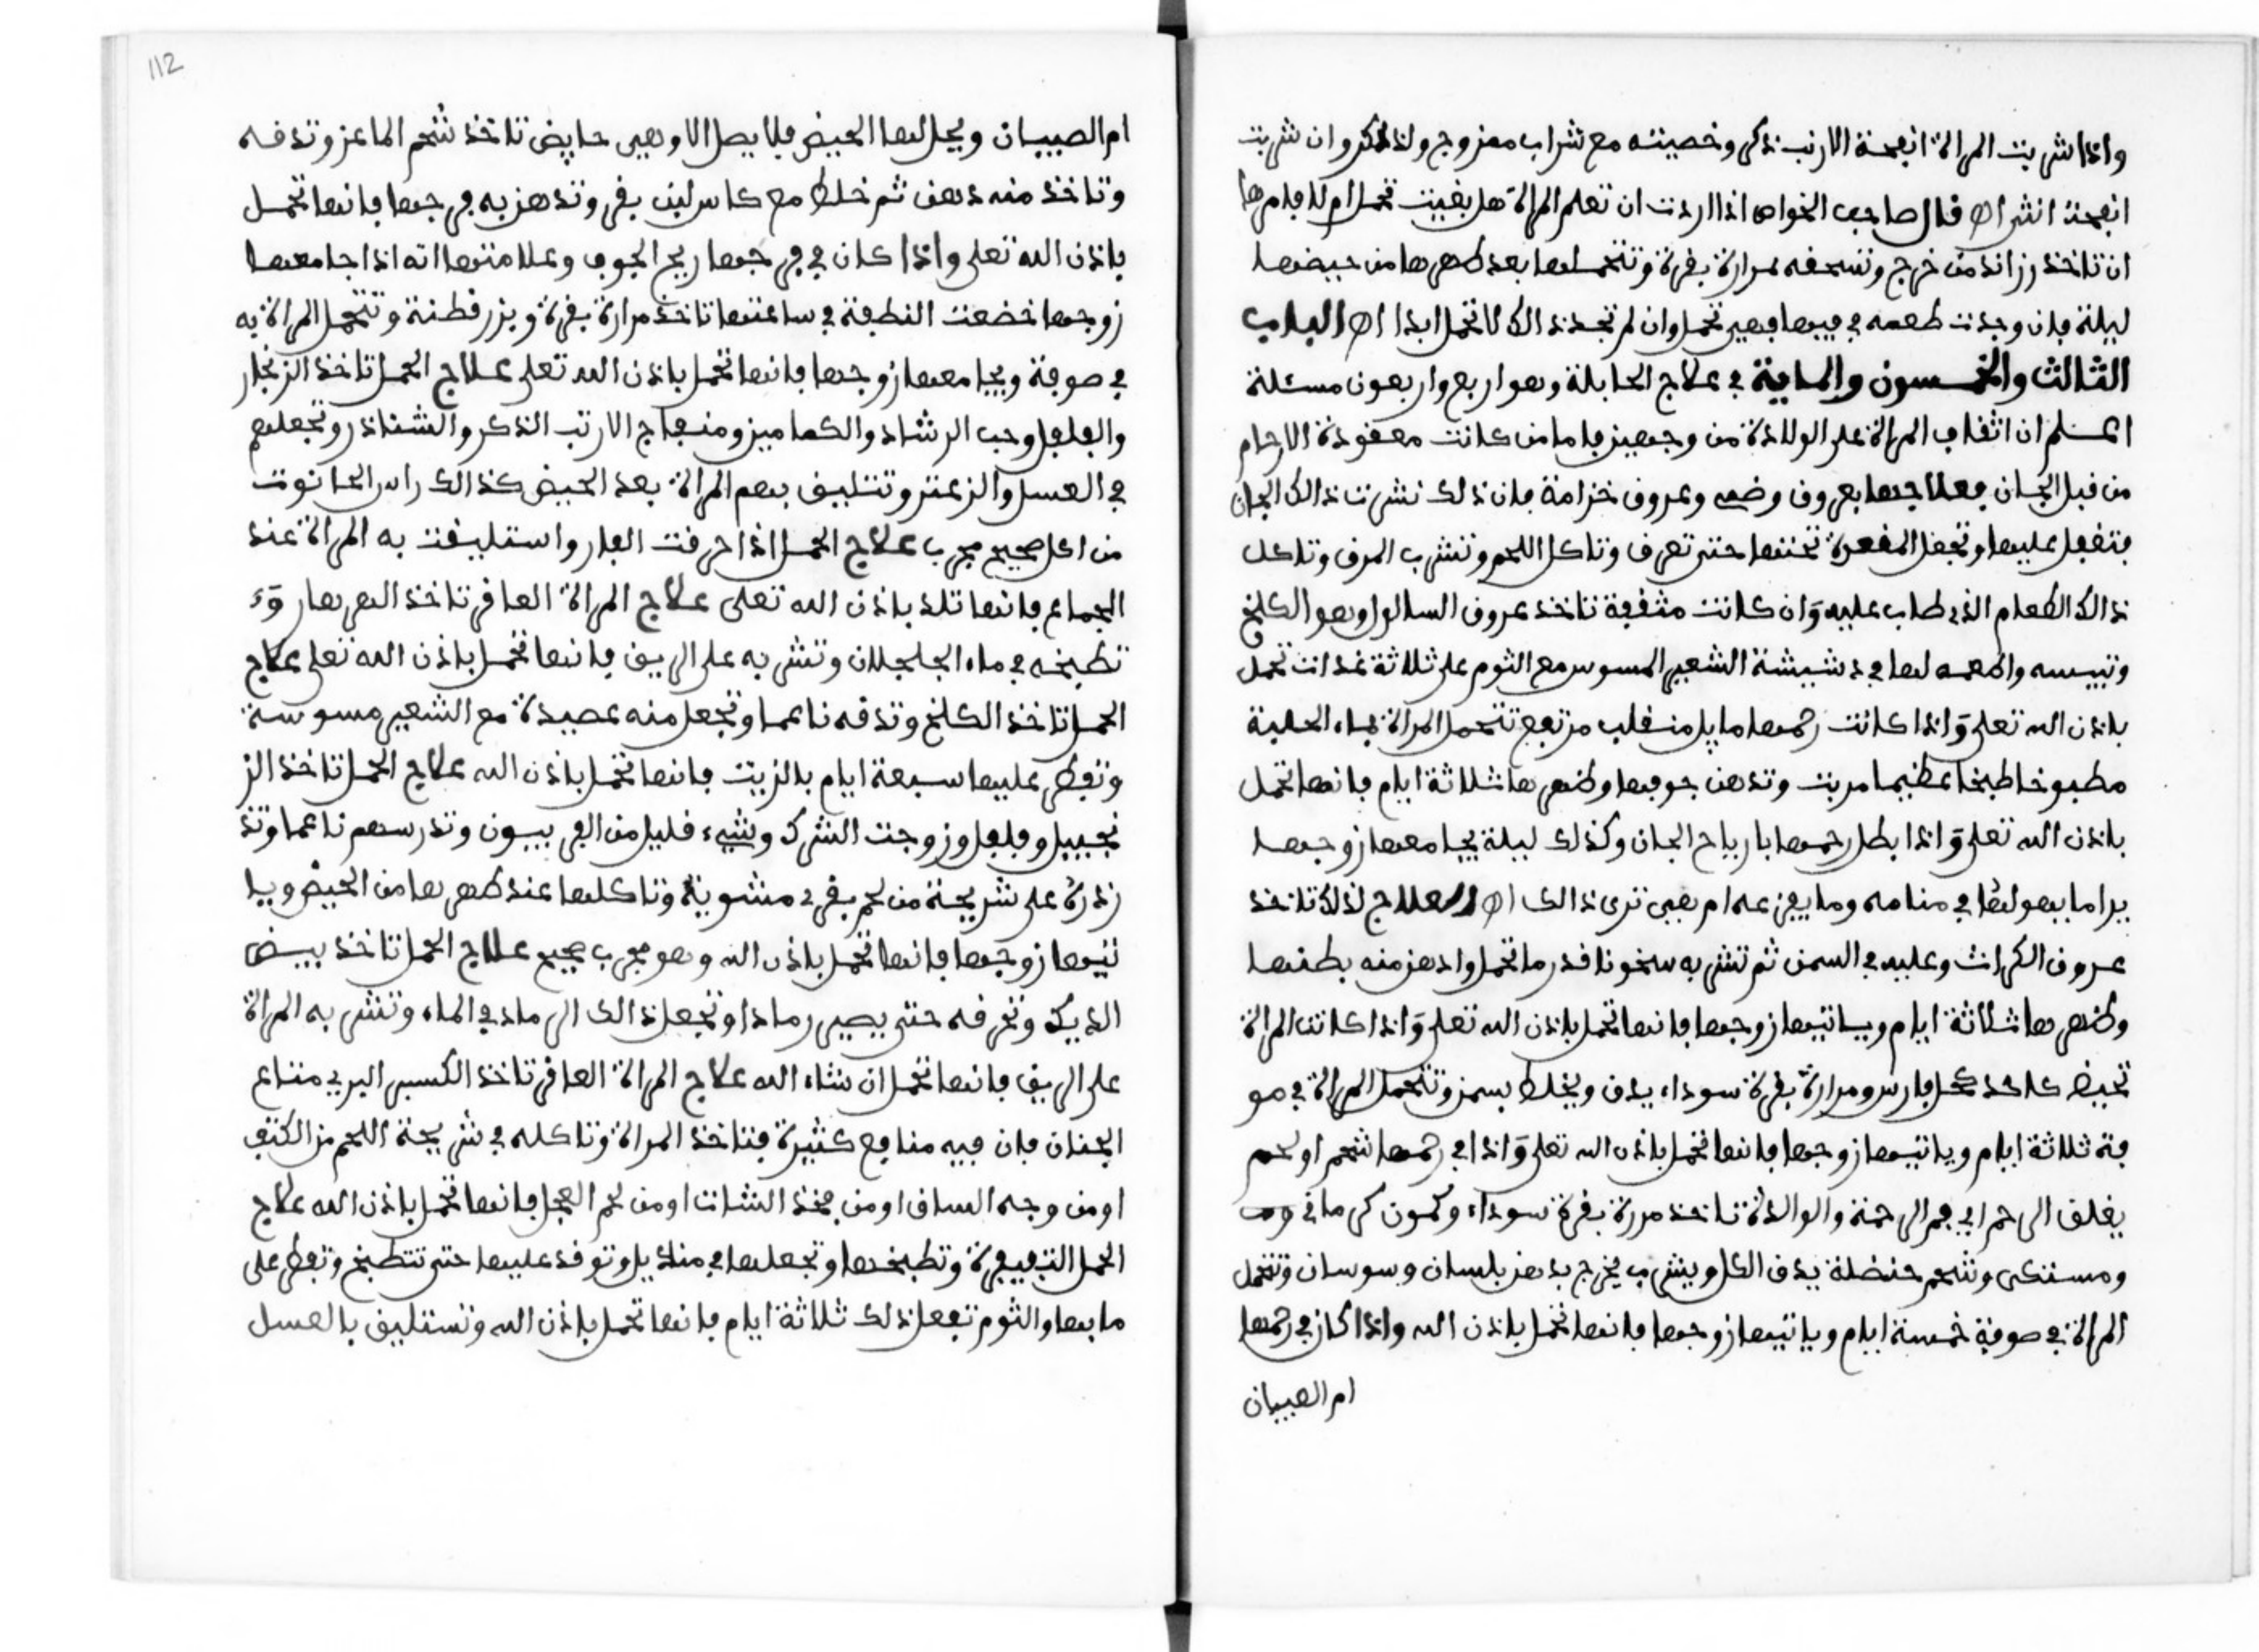 واذا شربت المراة انفحة الارنب ذكر وخصيته مع شراب ممزوج ولد الذكر وان شربت
انفحة انثى اه قال صاحب الخواص اذا اردت ان تعلم المراة هل بقيت تحمل ام لا فامرها
ان تاخذ رزاند من خرج وتسحفه بمرارة بقرة وتتحملها بعد طهرها من حيضها
ليلة فان وجدت طعمه في فيها فهي تحمل وان لم تجد ذالك لا تحمل ابدا اه الباب
الثالث والخمسون والماية في علاج الحابلة وهو اربع واربعون مسئلة
اعلم ان اثقاف المراة على الولادة من وجهين فاما من كانت معقودة الارحام
من قبل الجان فعلاجها بعروف وضعه وعروف خزامة فان ذلك نشرت ذالك الجان
فتفعل عليها وتجعل المقعرة تحتها حتى تعرف وتاكل اللحم وتشرب المرف وتاكل
ذالك الطعام الذي طاب عليه وان كانت مثقفة تاخذ عروف السالوا وهو الكلخ
وتيبسه واطعمه لها في دشيشة الشعير المسوس مع الثوم على ثلاثة غدات تحمل
باذن الله تعلى واذا كانت رحمها مايل منقلب مرتفع تتحمل المراة بماء الحلبة
مطبوخا طبخا عظيما مربت وتدهن جوفها وظهرها ثلاثة ايام فانها تحمل
باذن الله تعلى واذا بطل رحمها بارياح الجان وكذلك ليلة يجامعها زوجها
يرا ما يهولها في منامه وما يفزعه ام هي ترى ذالك اه والعلاج لذلك تاخذ
عروف الكراث وعليه في السمن ثم تشربه سخونا قدر ما تحمل وادهن منه بطنها
وظهرها ثلاثة ايام وياتيها زوجها فانها تحمل باذن الله تعلى واذا كانت المراة
تحيض كاحد كحل فارس ومرارة بقرة سوداء يدف ويخلط بسمن وتتحمل المراة في صو
فة ثلاثة ايام وياتيها زوجها فانها تحمل باذن الله تعلى واذا في رحمها شحم او لحم
يغلق الرحم اي فم الرحمة والوالدة تاخذ مررة بقرة سوداء وكمون كرماني
ومستكى وشحم حنضلة يدف الكل ويشرب يخرج بدهن بلسان وسوسان وتتحمل
المراة في صوفة خمسة ايام وياتيها زوجها فانها تحمل باذن الله واذا كان في رحمها
ام الصبيان
112
ام الصبيان ويحل لها الحيض فلا يصل الا وهي حايض تاخذ شحم الماعز وتدفه
وتاخذ منه دهن ثم خلط مع كاس لبن بقر وتدهن به فرجها فانها تحمل
باذن الله تعلى واذا كان في فرجها ريح الجوف وعلامتها انه اذا جامعها
زوجها خضعت النطفة في ساعتها تاخذ مرارة بقرة وبزر قطنة وتتحمل المراة به
في صوفة ويجامعها زوجها فانها تحمل باذن الله تعلى علاج الحمل تاخذ الزنجار
والفلفل وحب الرشاد والكماميز ومنفاج الارنب الذكر والشناذر وتجعلهم
في العسل والزعتر وتتليف بهم المراة بعد الحيض كذالك راس الحانوت
من اكل صحيح مجرب علاج الحمل اذا حرفت الفار واستليفت به المراة عند
الجماع فانها تلد باذن الله تعلى علاج المراة العاقر تاخذ الهرهار وء
تطبخه في ماء الجلجلان وتشربه على الريف فانها تحمل باذن الله تعلى علاج
الحمل تاخذ الكلخ وتدفه ناعما وتجعل منه عصيدة مع الشعير مسوسة
وتفطر عليها سبعة ايام بالزيت فانها تحمل باذن الله علاج الحمل تاخذ الز
نجبيل وفلفل وزوجت الشرك وشيء قليل من الفربيون وتدرسهم ناعما وتذ
زذرة على شريحة من لحم بقر مشوية وتاكلها عند طهرها من الحيض ويا
تيها زوجها فانها تحمل باذن الله وهو مجرب صحيح علاج الحمل تاخذ بيض
الديك وتحرفه حتى يصير رمادا وتجعل ذالك الرماد في الماء وتشربه المراة
على الريف فانها تحمل ان شاء الله علاج المراة العاقر تاخذ الكسبر البري متاع
الجنان فان فيه منافع كثيرة فتاخذ المراة وتاكله في شريحة اللحم من الكتف
او من وجه الساف او من فخذ الشات او من لحم العجل فانها تحمل باذن الله علاج
الحمل التفيفرة وتطبخها وتجعلها في منديل وتوفد عليها حتى تتطبخ وتفطر على
مايها والثوم تفعل ذلك ثلاثة ايام فانها تحمل باذن الله وتستليف بالعسل